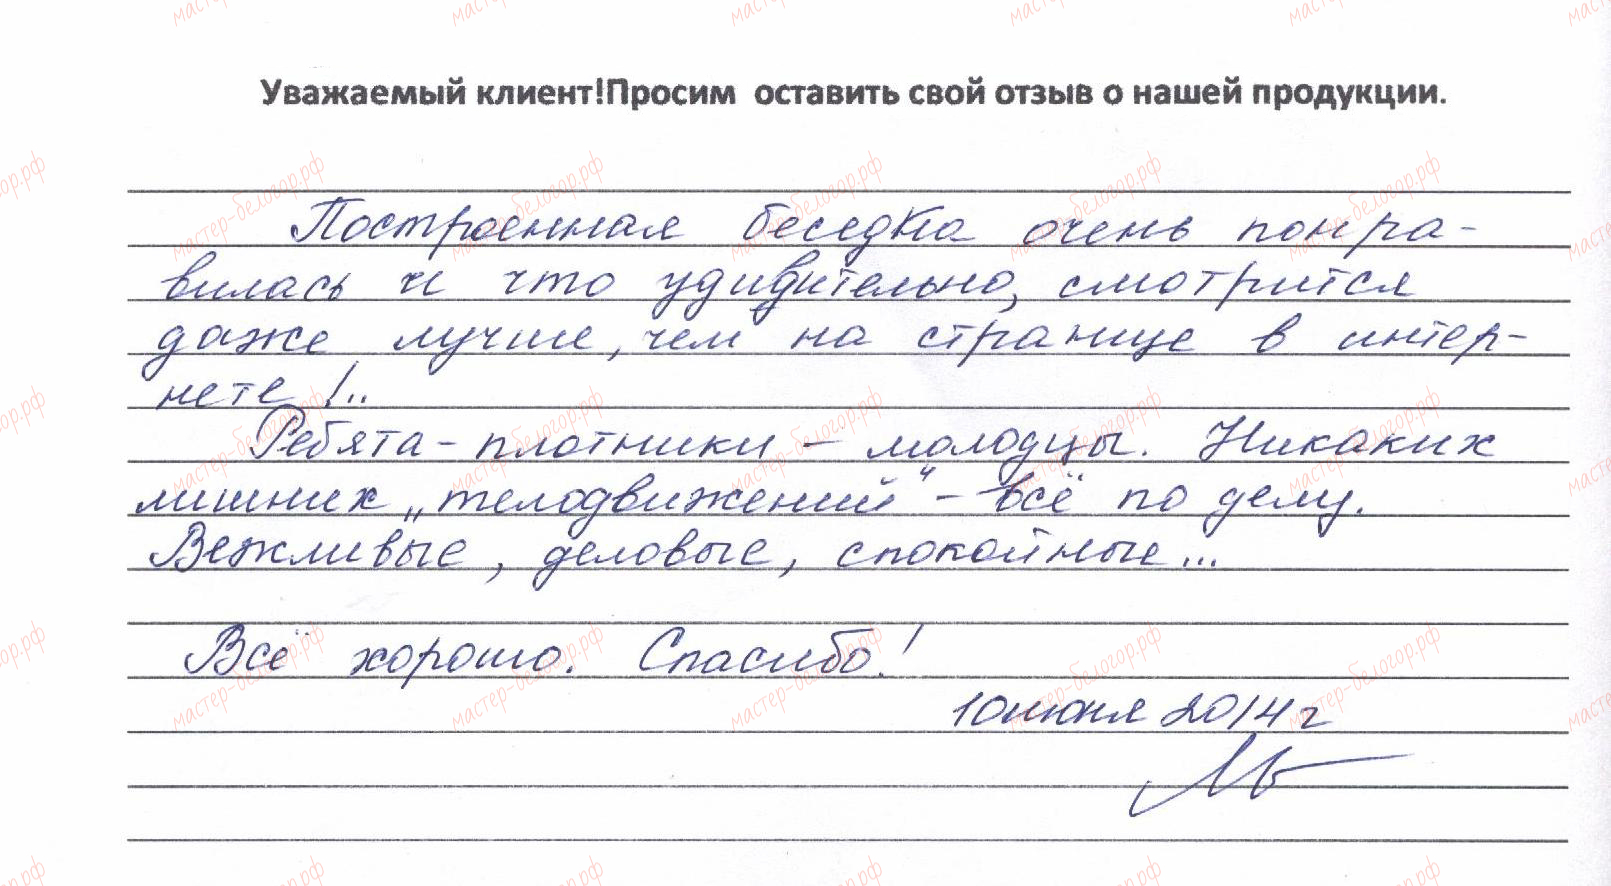 Уважаемый клиент!Просим оставить свой отзыв о нашей продукции.
Построенная беседка очень понра-
вилась и что удивительно, смотрится
даже лучше, чем на странице в интер-
нете!..
Ребята-плотники – молодцы. Никаких
лишних „телодвижений“ – всё по делу.
Вежливые, деловые, спокойные...
Всё хорошо. Спасибо!
10 июня 2014 г
мастер-белогор.рф